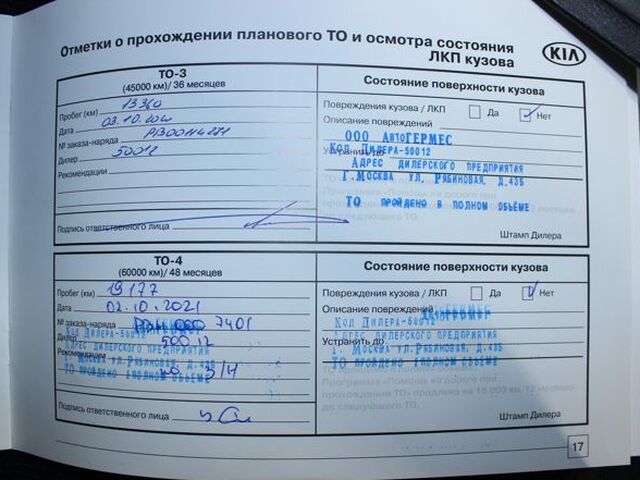 Отметки о прохождении планового ТО и осмотра состояния
ЛКП кузова
KIA
ТО-3
(45000 км)/ 36 месяцев
Пробег (км) 13360
Дата 03.10.
№ заказа-наряда
Дилер 50012
Рекомендации
Подпись ответственного лица
Состояние поверхности кузова
Повреждения кузова / ЛКП Да Нет
Описание повреждений
ООО АвтоГЕРМЕС
Код Дилера-50012
Устранить до
Адрес дилерского предприятия
г.Москва ул. Рябиновая, д.43Б
ТО пройдено в полном объёме
Штамп Дилера
ТО-4
(60000 км)/ 48 месяцев
Пробег (км) 19177
Дата 02.10.2021
№ заказа-наряда 7401
Код Дилера-50012
Дилер 50012
Адрес дилерского предприятия
Рекомендации
г. Москва ул. Рябиновая, д.43Б
ТО пройдено в полном объёме
Подпись ответственного лица
Состояние поверхности кузова
Повреждения кузова / ЛКП Да Нет
Описание повреждений
Код Дилера-50012
Адрес дилерского предприятия
Устранить до
г. Москва ул. Рябиновая, д.43Б
ТО пройдено в полном объёме
Программа «Помощь на дороге при
прохождении ТО» продлена на 15 000 км/12 месяцев
до следующего ТО.
Штамп Дилера
17